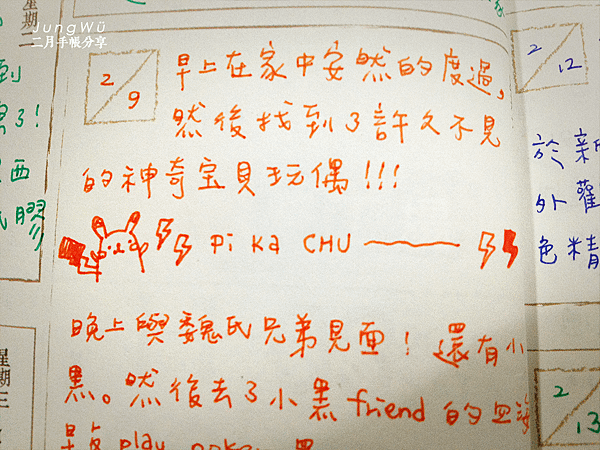 JungWü
二月手帳分享
星期二
2
9
早上在家中安然的度過,
然後找到了許久不見
的神奇宝貝玩偶!!!
Pi Ka CHU
晚上與魏氏兄弟見面! 還有小
黑。然後去了小黑 friend 的
play
到
了!
西
膠
星期三
2
12
於新
外
色精
2
13